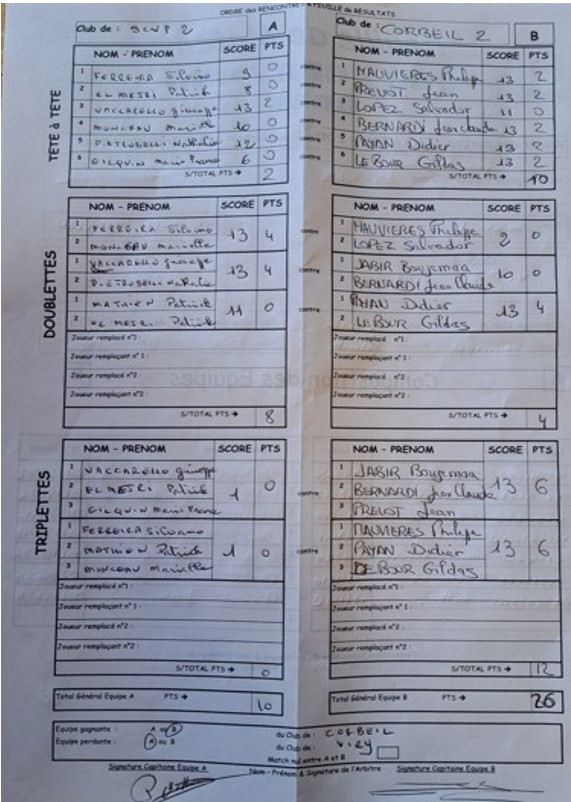 ORDRE des RENCONTRES & FEUILLE de RÉSULTATS
Club de : SCVP 2 A
Club de : CORBEIL 2 B
TÊTE à TÊTE
NOM - PRENOM SCORE PTS
1 FERREIRA Silvino 9 0
2 EL MESRI Patrick 8 0
3 VACCARELLO 13 2
4 10 0
5 PIETROBELLI Nathalie 12 0
6 GILQUIN Marie France 6 0
S/TOTAL PTS → 2
contre
NOM - PRENOM SCORE PTS
1 MAUVIERES Philippe 13 2
2 PREVOST Jean 13 2
3 LOPEZ Salvador 11 0
4 BERNARDI Jean Claude 13 2
5 PAYAN Didier 13 2
6 LE BOUR Gildas 13 2
S/TOTAL PTS → 10
DOUBLETTES
NOM - PRENOM SCORE PTS
1 FERREIRA Silvano 13 4
2 MONCEAU Marielle
1 VACCARELLO 13 4
2 PIETROBELLI Nathalie
1 MATHIEN Patrick 11 0
2 EL MESRI Patrick
Joueur remplacé n°1 :
Joueur remplaçant n°1 :
Joueur remplacé n°2 :
Joueur remplaçant n°2 :
S/TOTAL PTS → 8
contre
NOM - PRENOM SCORE PTS
1 MAUVIERES Philippe 2 0
2 LOPEZ Salvador
1 JABIR Boujemaa 10 0
2 BERNARDI Jean Claude
1 PAYAN Didier 13 4
2 LE BOUR Gildas
Joueur remplacé n°1 :
Joueur remplaçant n°1 :
Joueur remplacé n°2 :
Joueur remplaçant n°2 :
S/TOTAL PTS → 4
TRIPLETTES
NOM - PRENOM SCORE PTS
1 VACCARELLO 1 0
2 EL MESRI Patrick
3 GILQUIN Marie France
1 FERREIRA Silvano 1 0
2 MATHIEN Patrick
3 MONCEAU Marielle
Joueur remplacé n°1 :
Joueur remplaçant n°1 :
Joueur remplacé n°2 :
Joueur remplaçant n°2 :
S/TOTAL PTS → 0
contre
NOM - PRENOM SCORE PTS
1 JABIR Boujemaa 13 6
2 BERNARDI Jean Claude
3 PREVOST Jean
1 MAUVIERES Philippe 13 6
2 PAYAN Didier
3 LE BOUR Gildas
Joueur remplacé n°1 :
Joueur remplaçant n°1 :
Joueur remplacé n°2 :
Joueur remplaçant n°2 :
S/TOTAL PTS → 12
Total Général Equipe A PTS → 10
Total Général Equipe B PTS → 26
Equipe gagnante : A ou B du Club de : CORBEIL
Equipe perdante : A ou B du Club de : VIRY
Match nul entre A et B
Signature Capitaine Equipe A Nom - Prénom & Signature de l'Arbitre Signature Capitaine Equipe B